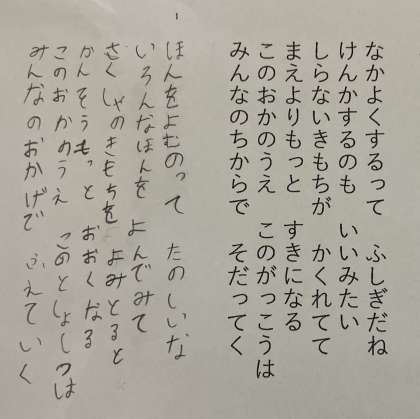 なかよくするって　ふしぎだね
けんかするのも　いいみたい
しらないきもちが　かくれてて
まえよりもっと　すきになる
このおかのうえ　このがっこうは
みんなのちからで　そだってく
ほんをよむのって　たのしいな
いろんなほんを　よんでみて
さくしゃのきもちを　よみとると
かんそうもっと　おおくなる
このおかのうえ　このとしょしつは
みんなのおかげで　ふえていく